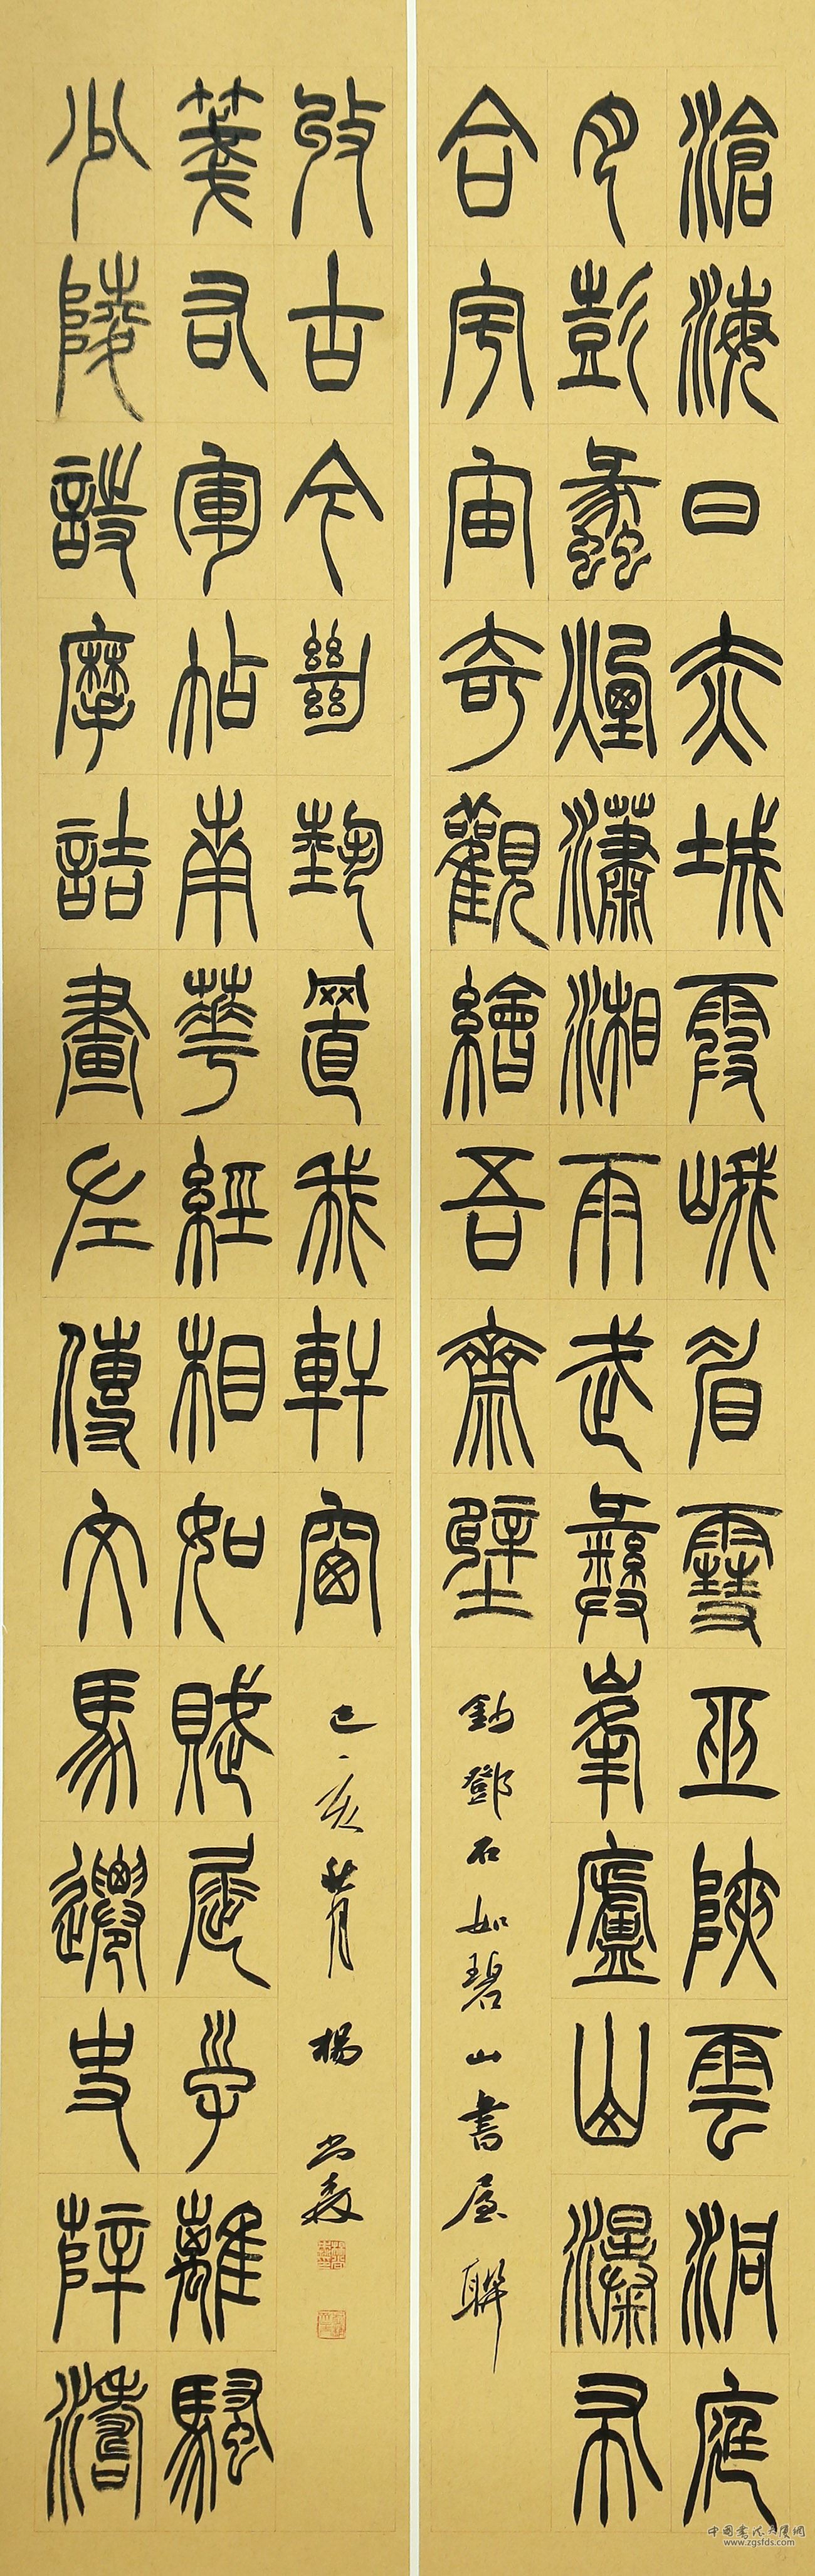 滄海日赤城霞峨眉雪巫峽雲洞庭
月彭蠡煙瀟湘雨武彝峯廬山瀑布
合宇宙奇觀繪吾齋壁
鈔鄧石如碧山書屋聯
少陵詩摩詰畫左傳文馬遷史薛濤
箋右軍帖南華經相如賦屈子離騷
收古今絕藝置我軒窗
己亥 楊
中國書法大廈網
www.zgsfds.com